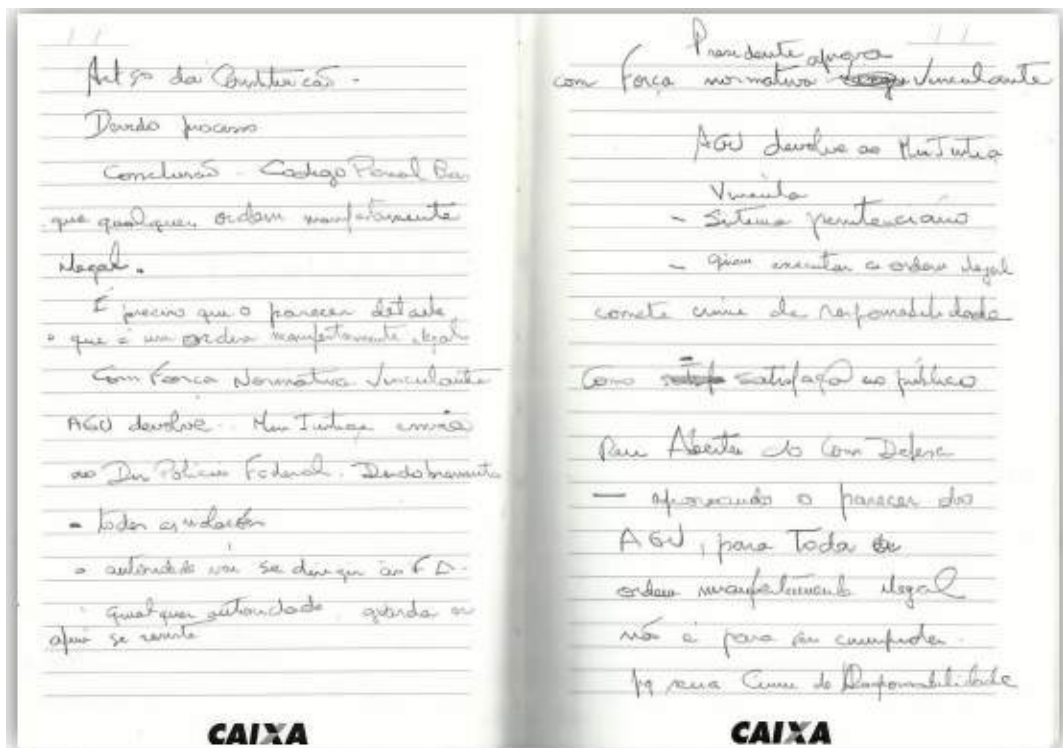 Artgo da Constituição -
Devido processo
Conclusão - Codigo Penal
que qualquer ordem manifestamente
ilegal.
É preciso que o parecer detalhe
o que é um ordem manifestamente ilegal
Com Força Normativa Vinculante
AGU devolve Min Justiça envia
ao Dir Polícia Federal. Desdobramento
- todas as relações
o autoridade vai se dirigir às
qualquer autoridade guarda
se
Presidente aprova
com Força normativa Vinculante
AGU devolve ao Min Justiça
Vincula
- Sistema penitenciário
- quem executar a ordem ilegal
comete crime de responsabilidade
Como satisfação ao público
Reu Aberta do Com Defesa
- aprovando o parecer do
AGU, para toda
ordem manifestamente ilegal
não é para ser cumprida.
pq seria Crime de Responsabilidade
CAIXA
CAIXA